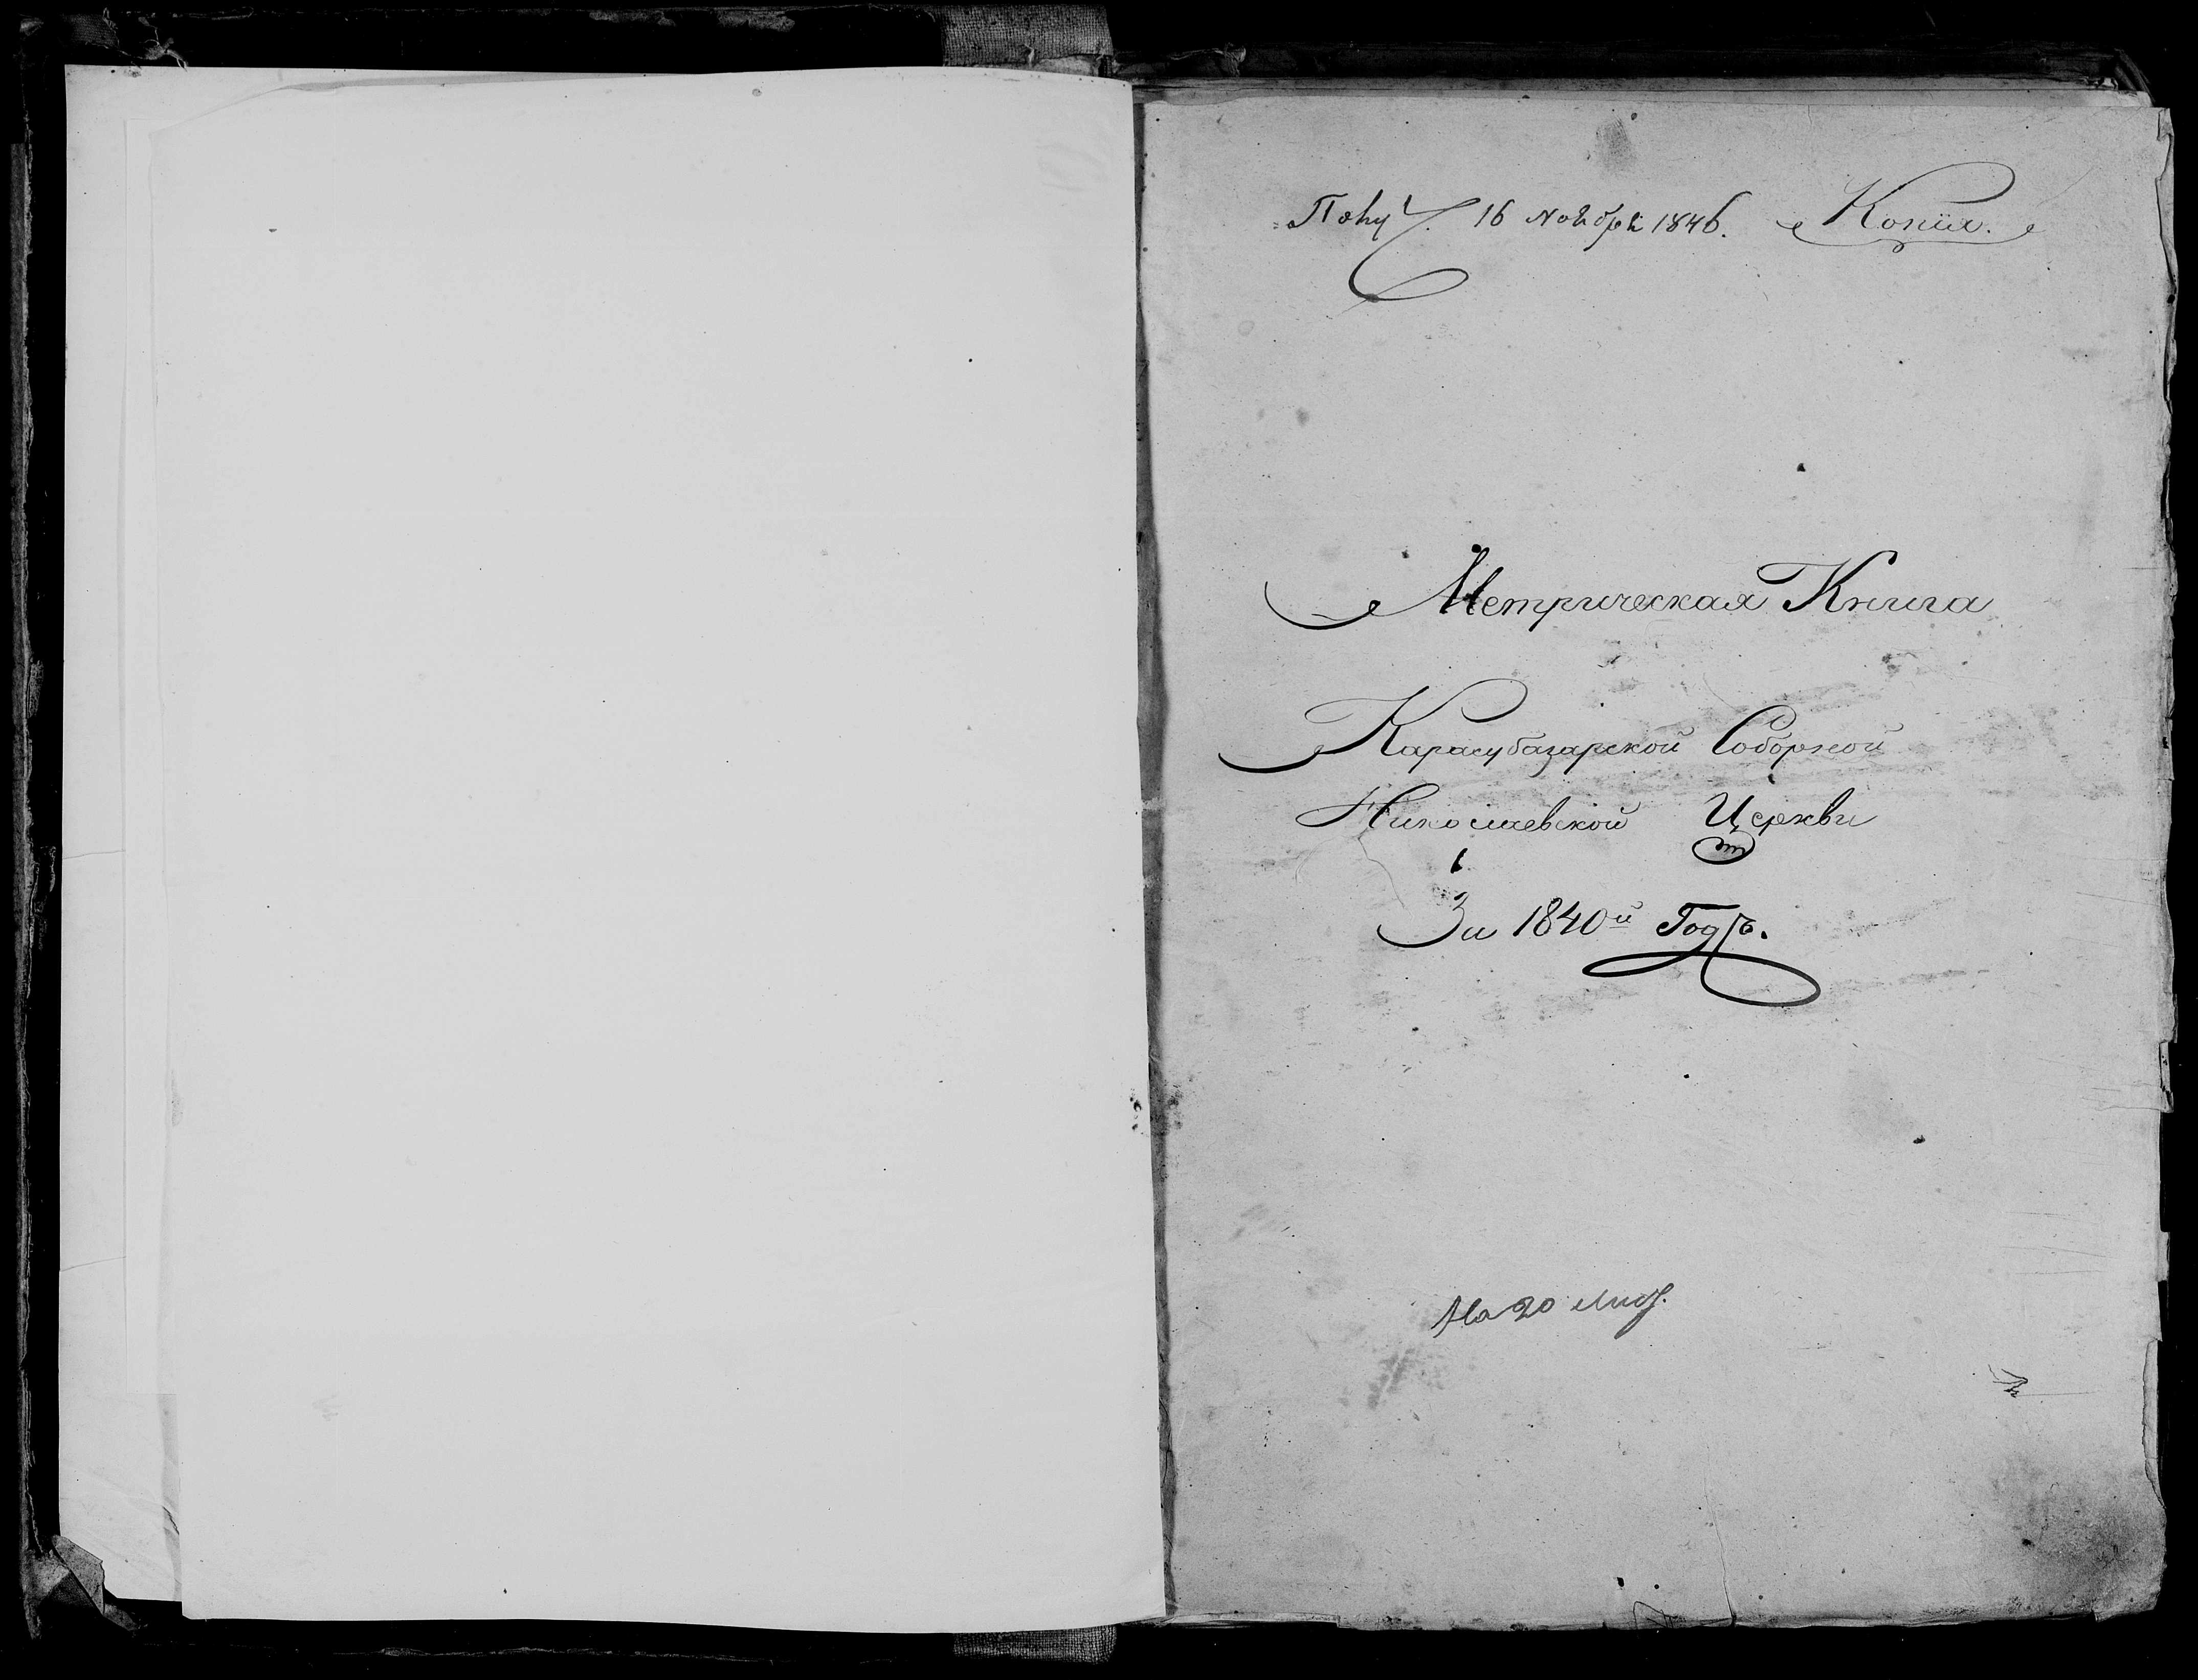 Получ. 16 Ноября 1846. Копія.
Метрическая Книга
Карасубазарской Соборной
Николаевской Церкви
За 1840й Годъ.
На 20 лис.